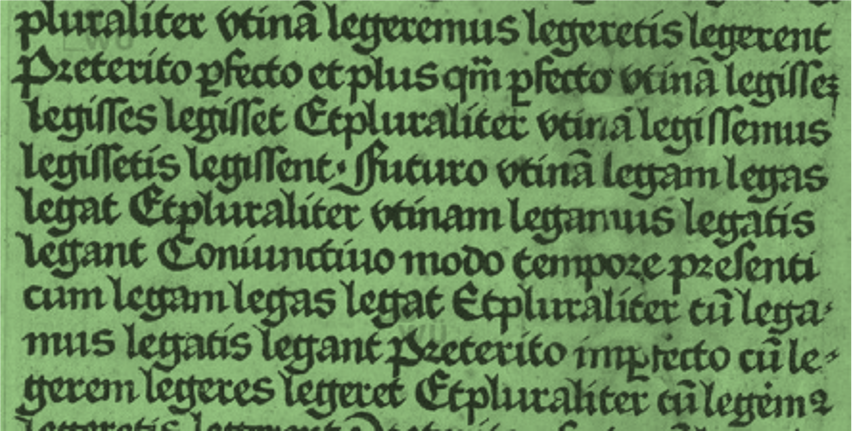 pluraliter vtinā legeremus legeretis legerent
Preterito ꝑfecto et plus qm̄ ꝑfecto vtinā legisseꝫ
legisses legisset Etpluraliter vtinā legissemus
legissetis legissent· Futuro vtinā legam legas
legat Etpluraliter vtinam legamus legatis
legant Coniunctiuo modo tempore presenti
cum legam legas legat Etpluraliter cū lega⸗
mus legatis legant Preterito imꝑfecto cū le⸗
gerem legeres legeret Etpluraliter cū legem᷒
legeretis legerent